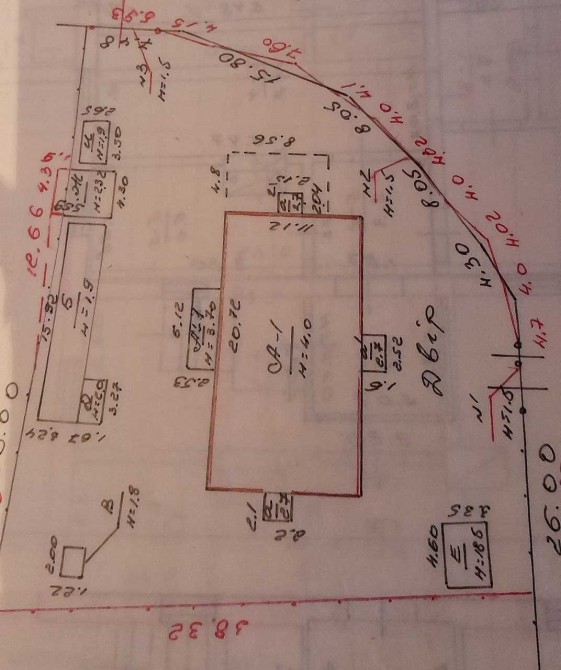 8.9
4.15
15.80
7.60
4.1
8.05
4.0
4.02
8.05
4.0
4.02
4.30
4.0
4.7
N3
H=1.5
N2
H=1.5
N1
H=1.5
2.65
H=1.9
3.50
Ж
H=2.32
4.30
12.66
4.39
15.92
Б
H=1.9
3.27
1.67
6.24
8.56
4.8
2.12
2.7
2.04
11.12
20.72
А-1
H=4.0
6.12
А-1
H=3.70
2.53
2.7
2.52
Двір
2.1
2.7
2.2
В
H=1.8
2.00
1.22
4.60
3.25
Е
H=1.86
26.00
38.32